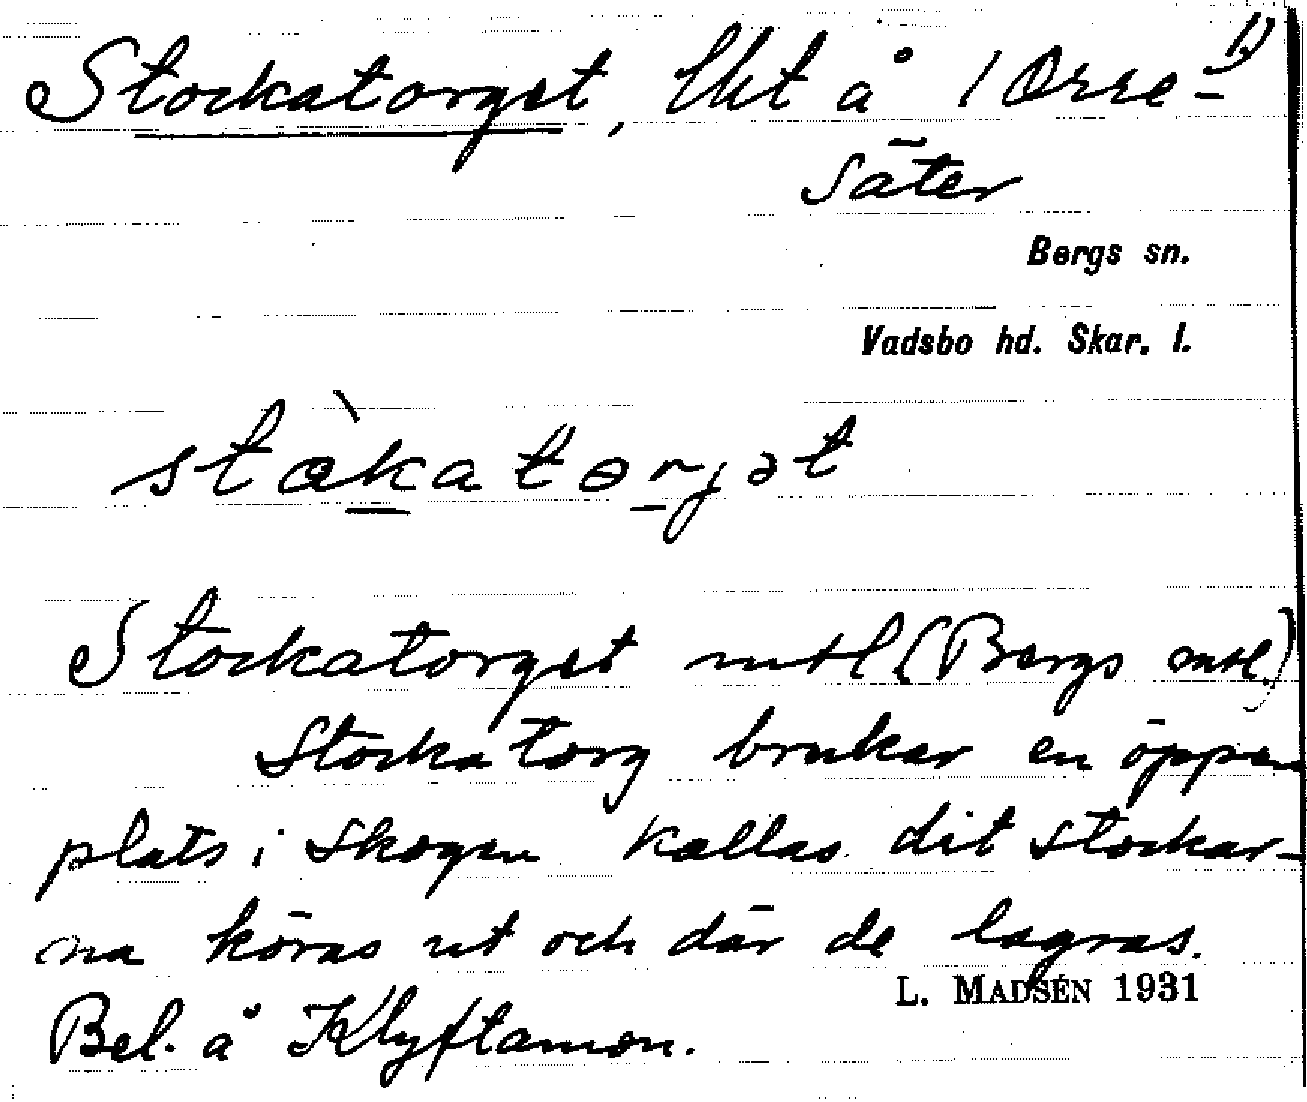 Stockatorget, lkt å 1 Orre- 1)
säter
Bergs sn.
Vadsbo hd. Skar. l.
Stockatorget mtl (Bergs mtl)
Stockatorg brukar en öppen
plats i skogen kallas dit stockar-
na köras ut och där de lagras.
L. MADSÉN 1931
Bel. å Klyftamon.